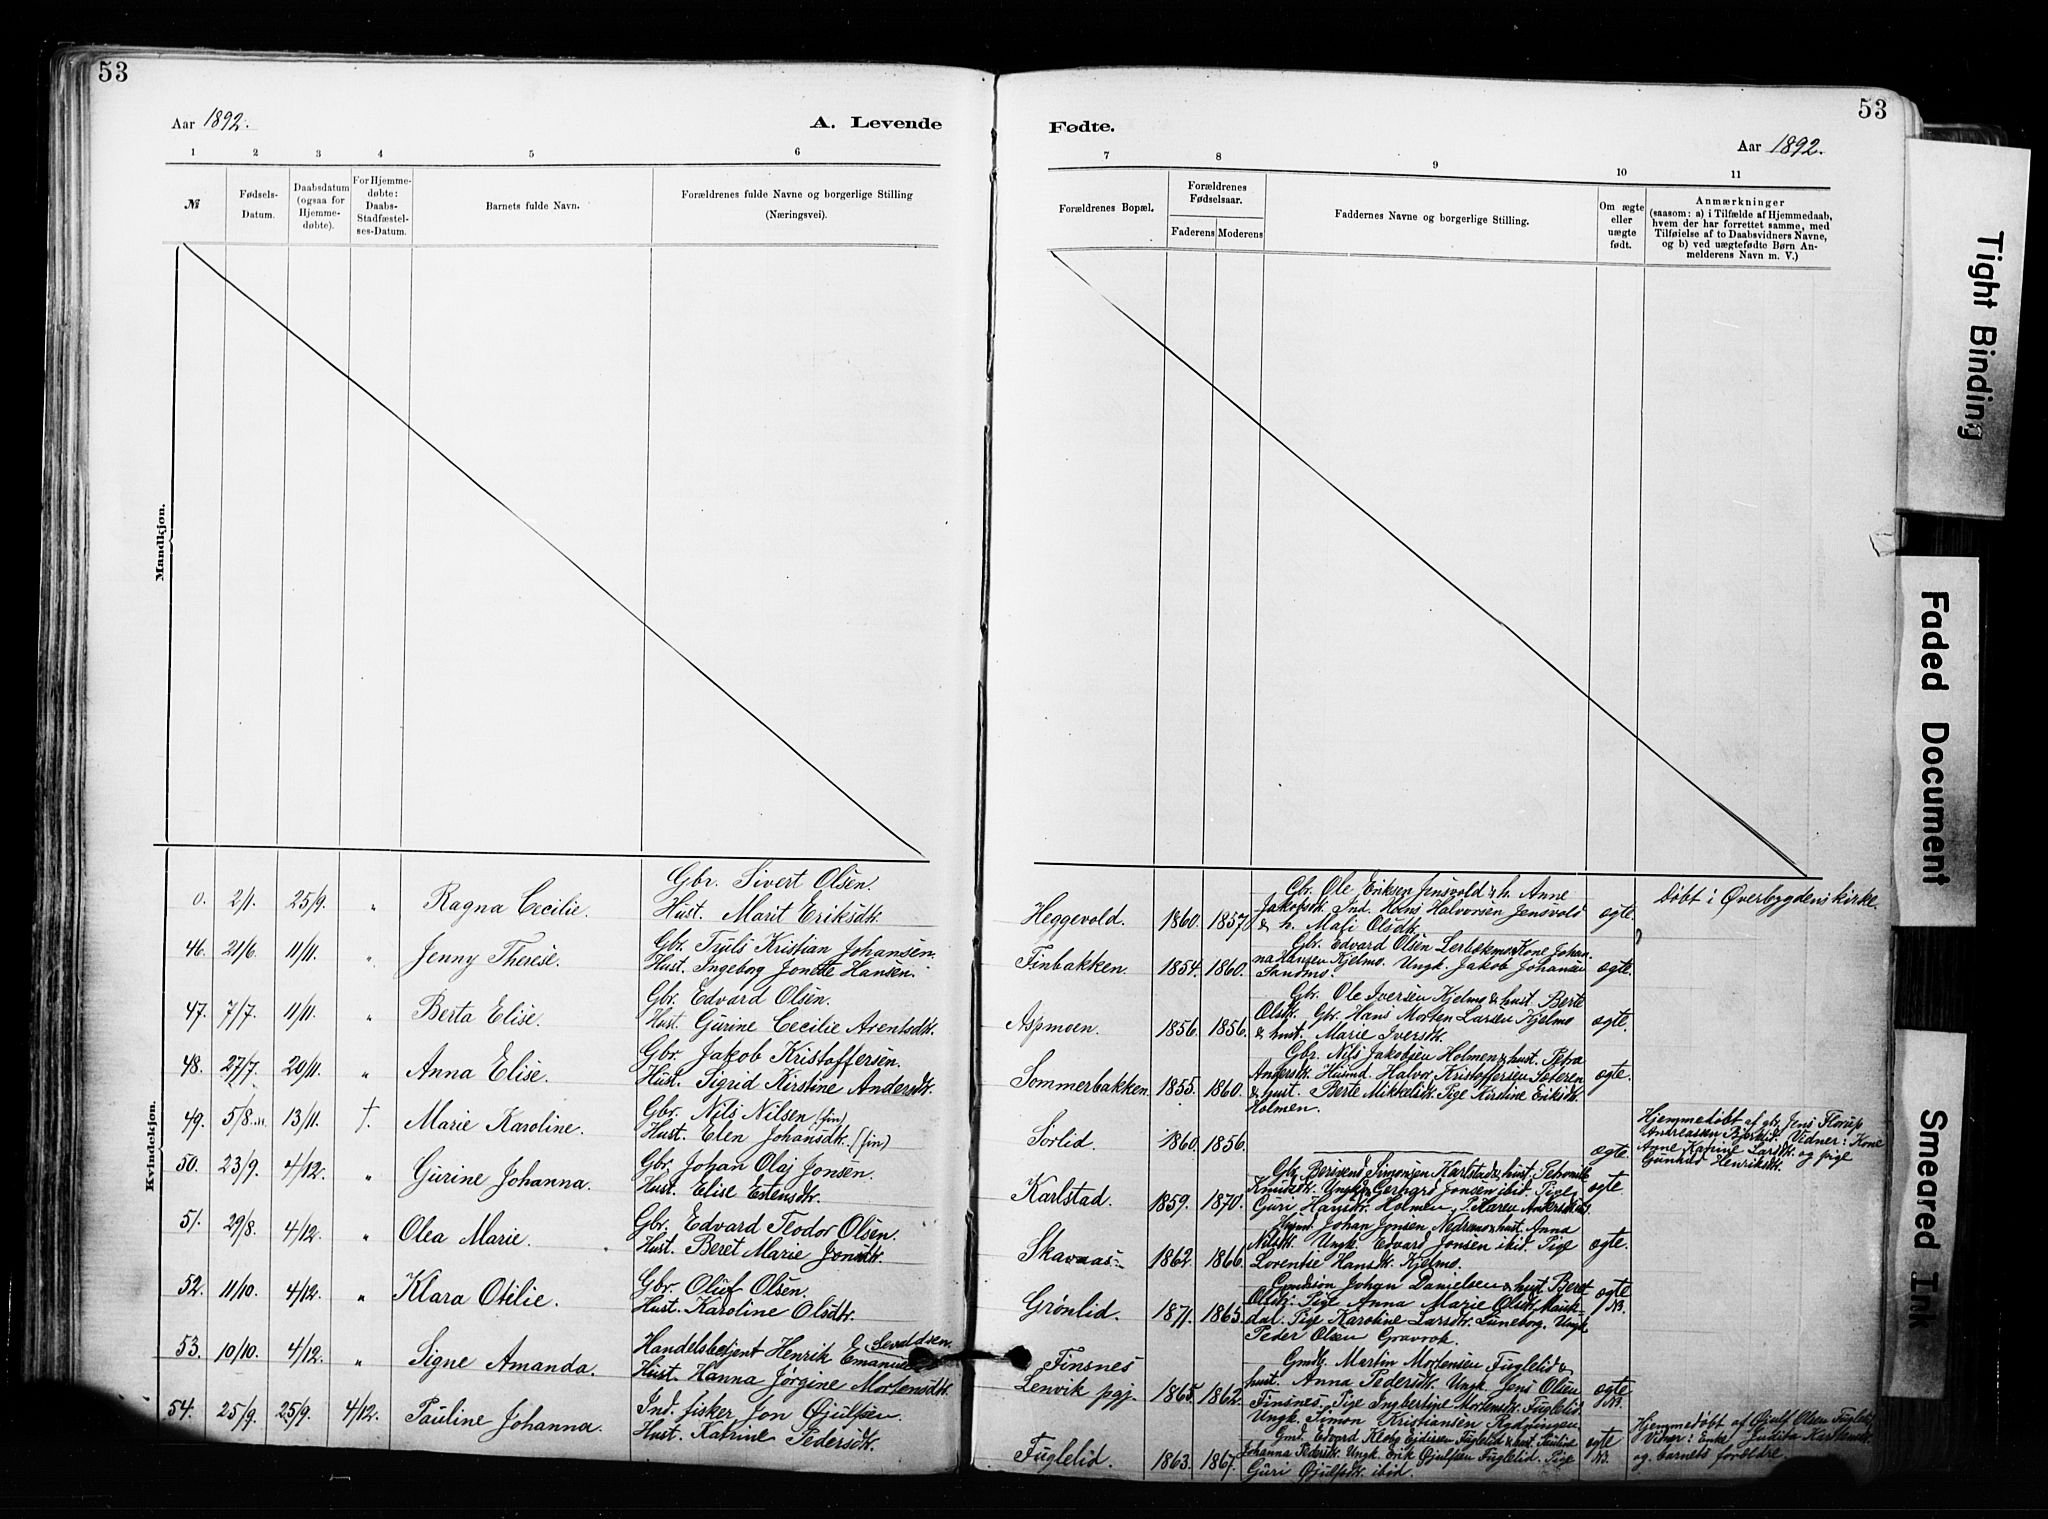 53
53
Aar 1892.
A. Levende
Fødte.
Aar 1892.
1 2 3 4 5 6
7 8 9 10 11
№
Fødsels-
Datum.
Daabsdatum
(ogsaa for
Hjemme-
døbte).
For Hjemme-
døbte:
Daabs-
Stadfæstel-
ses-Datum.
Barnets fulde Navn.
Forældrenes fulde Navne og borgerlige Stilling
(Næringsvei).
Forældrenes Bopæl.
Forældrenes
Fødselsaar.
Faderens Moderens
Faddernes Navne og borgerlige Stilling.
Om ægte
eller
uægte
født.
Anmærkninger
(saasom: a) i Tilfælde af Hjemmedaab,
hvem der har forrettet samme, med
Tilføielse af to Daabsvidners Navne,
og b) ved uægtefødte Børn An-
melderens Navn m. V.)
Mandkjøn.
Kvindekjøn.
0. 2/1. 25/9. " Ragna Cecilie.
Gbr. Sivert Olsen.
Hust. Marit Eriksdtr.
Heggevold. 1860. 1857.
Gbr. Ole Eriksen Jensvold & h. Anne
Jakobsdtr. Ind. Hans Halvorsen Jensvold
& h. Mafi Olsdtr.
ægte.
Døbt i Øverbygdens kirke.
46. 21/6. 11/11. " Jenny Therese.
Gbr. Truls Kristian Johansen.
Hust. Ingeborg Jonette Hansen.
Finbakken. 1854. 1860.
Gbr. Edvard Olsen Lerbækmo & Kone Johan-
na Hansen Kjelmo. Ungk. Jakob Johansen
Sandmo.
ægte.
47. 7/7. 11/11. " Berta Elise.
Gbr. Edvard Olsen.
Hust. Gurine Cecilie Arentsdtr.
Aspmoen. 1856. 1856.
Gbr. Ole Iversen Kjelmo & hust. Berte
Olsdtr. Gbr. Hans Morten Larsen Kjelmo
& hust. Marie Iversdtr.
ægte.
48. 27/7. 20/11. " Anna Elise.
Gbr. Jakob Kristoffersen.
Hust. Sigrid Kirstine Andersdtr.
Sommerbakken. 1855. 1860.
Gbr. Nils Jakobsen Holmen & hust. Petra
Andersdtr. Husmd. Halvor Kristoffersen
& hust. Berte Mikkelsdtr. Pige Kirstine Eriksdtr.
Holmen.
ægte.
49. 5/8. 13/11. †. Marie Karoline.
Gbr. Nils Nilsen (fin)
Hust. Elen Johansdtr. (fin)
Sørlid. 1860. 1856.
ægte.
Hjemmedøbt af gbr. Jens Florup
Andreassen Bjørklid. Vidner: Kone
Anne Karine Larsdtr. og pige
Gunhild Henriksdtr.
50. 23/9. 4/12. " Gurine Johanna.
Gbr. Johan Olaj Jonsen.
Hust. Elise Estensdtr.
Karlstad. 1859. 1870.
Gbr. Bersvend Simonsen Karlstad & hust. Petronille
Knudsdtr. Ungk. Jonsen ibid. Pige
Guri Hansdtr. Holmen, P. Karen Andersdtr.
ægte.
51. 29/8. 4/12. " Olea Marie.
Gbr. Edvard Teodor Olsen.
Hust. Beret Marie Jonsdtr.
Skavaas. 1862. 1866.
Husmd. Johan Jonsen Nedremo & hust. Anna
Nilsdtr. Ungk. Edvard Jonsen ibid. Pige
Lorentse Hansdtr. Kjelmo.
ægte.
52. 11/10. 4/12. " Klara Otilie.
Gbr. Oluf Olsen.
Hust. Karoline Olsdtr.
Grønlid. 1871. 1865.
Gmdssøn Johan Danielsen & hust. Beret
Olsdtr. Pige Anna Marie Olsdtr. Mauk-
dal. Pige Karoline Larsdtr. Luneborg. Ungk.
Peder Olsen Gravrok.
ægte
NB.
53. 10/10. 4/12. " Signe Amanda.
Handelsbetjent Henrik Emanuel Sevaldsen.
Hust. Hanna Jørgine Mortensdtr.
Finsnes
Lenvik pgj. 1865. 1862.
Gmd. Martin Mortensen Fuglelid &
hust. Anna Pedersdtr. Ungk. Jens Olsen
Finsnes. Pige Ingbertine Mortensdtr. Fuglelid.
Ungk. Simon Kristiansen Rydningen
ægte
NB.
54. 25/9. 25/9. 4/12. Pauline Johanna.
Ind. fisker Jon Øjulfsen.
Hust. Katrine Pedersdtr.
Fuglelid. 1863. 1867.
Gmd. Edvard Kleby Eidisen Fuglelid & hust. Pauline
Johanna Pedersdtr. Ungk. Erik Øjulfsen Fuglelid. Pige
Guri Øjulfsdtr. ibid.
ægte
NB.
Hjemmedøbt af Øjulf Olsen Fuglelid
Vidner: Enke Juditha
og barnets forældre.
Tight Binding
Faded Document
Smeared Ink